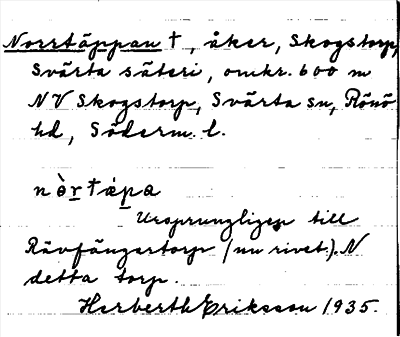 Norrtäppan †, åker, Skogstorp,
Svärta säteri, omkr. 600 m
NV Skogstorp, Svärta sn, Rönö
hd, Söderm. l.
nòr̲tápa
Ursprungligen till
Rävfångartorp (nu rivet). N
detta torp.
Herberth Eriksson 1935.